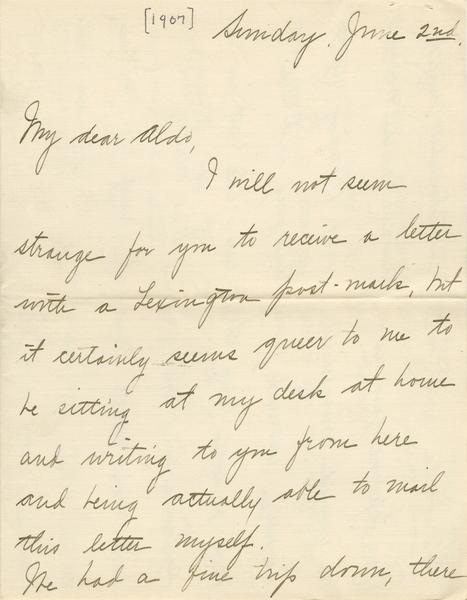 [1907]
Sunday, June 2nd.
My dear Aldo,
I will not seem
strange for you to receive a letter
with a Lexington post-mark, but
it certainly seems queer to me to
be sitting at my desk at home
and writing to you from here
and being actually able to mail
this letter myself.
We had a fine trip down, there